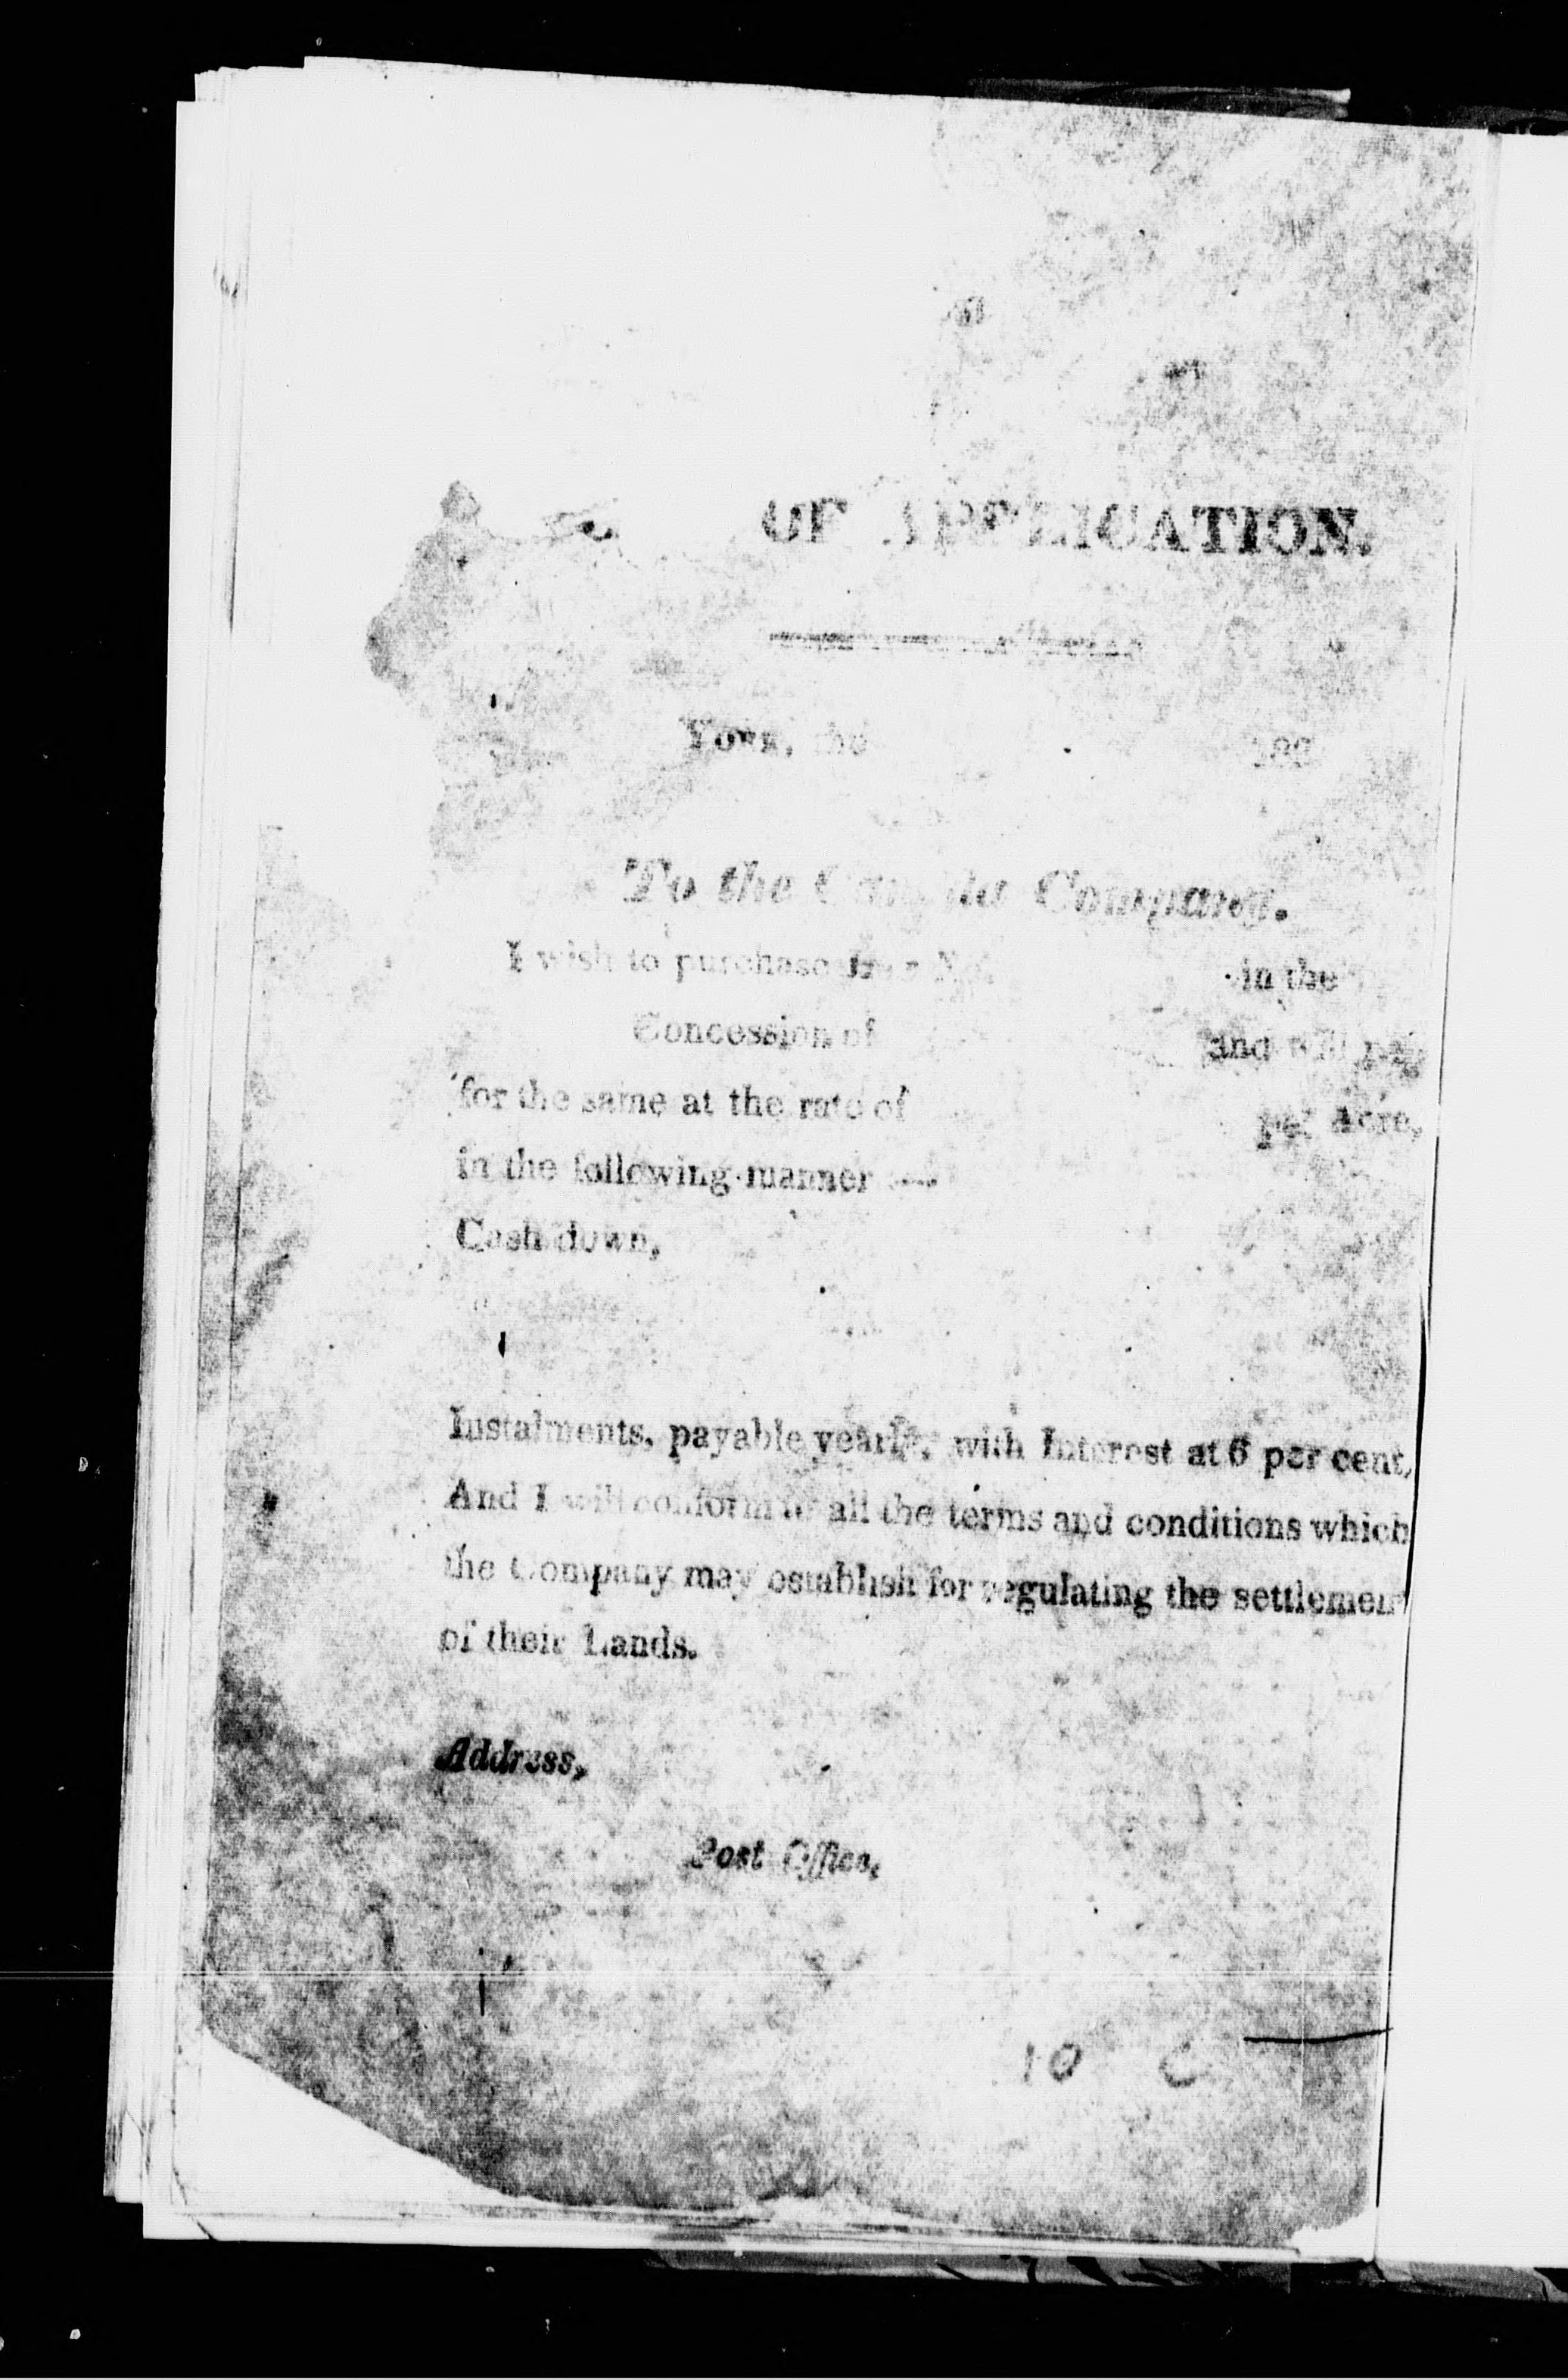 OF APPLICATION.
York, the 182
To the Canada Company.
I wish to purchase in the
Concession of and will pay
for the same at the rate of per Acre,
in the following manner —
Cash down,
Instalments, payable yearly, with Interest at 6 per cent,
And I will conform to all the terms and conditions which
the Company may establish for regulating the settlement
of their Lands.
Address,
Post Office,
10 C